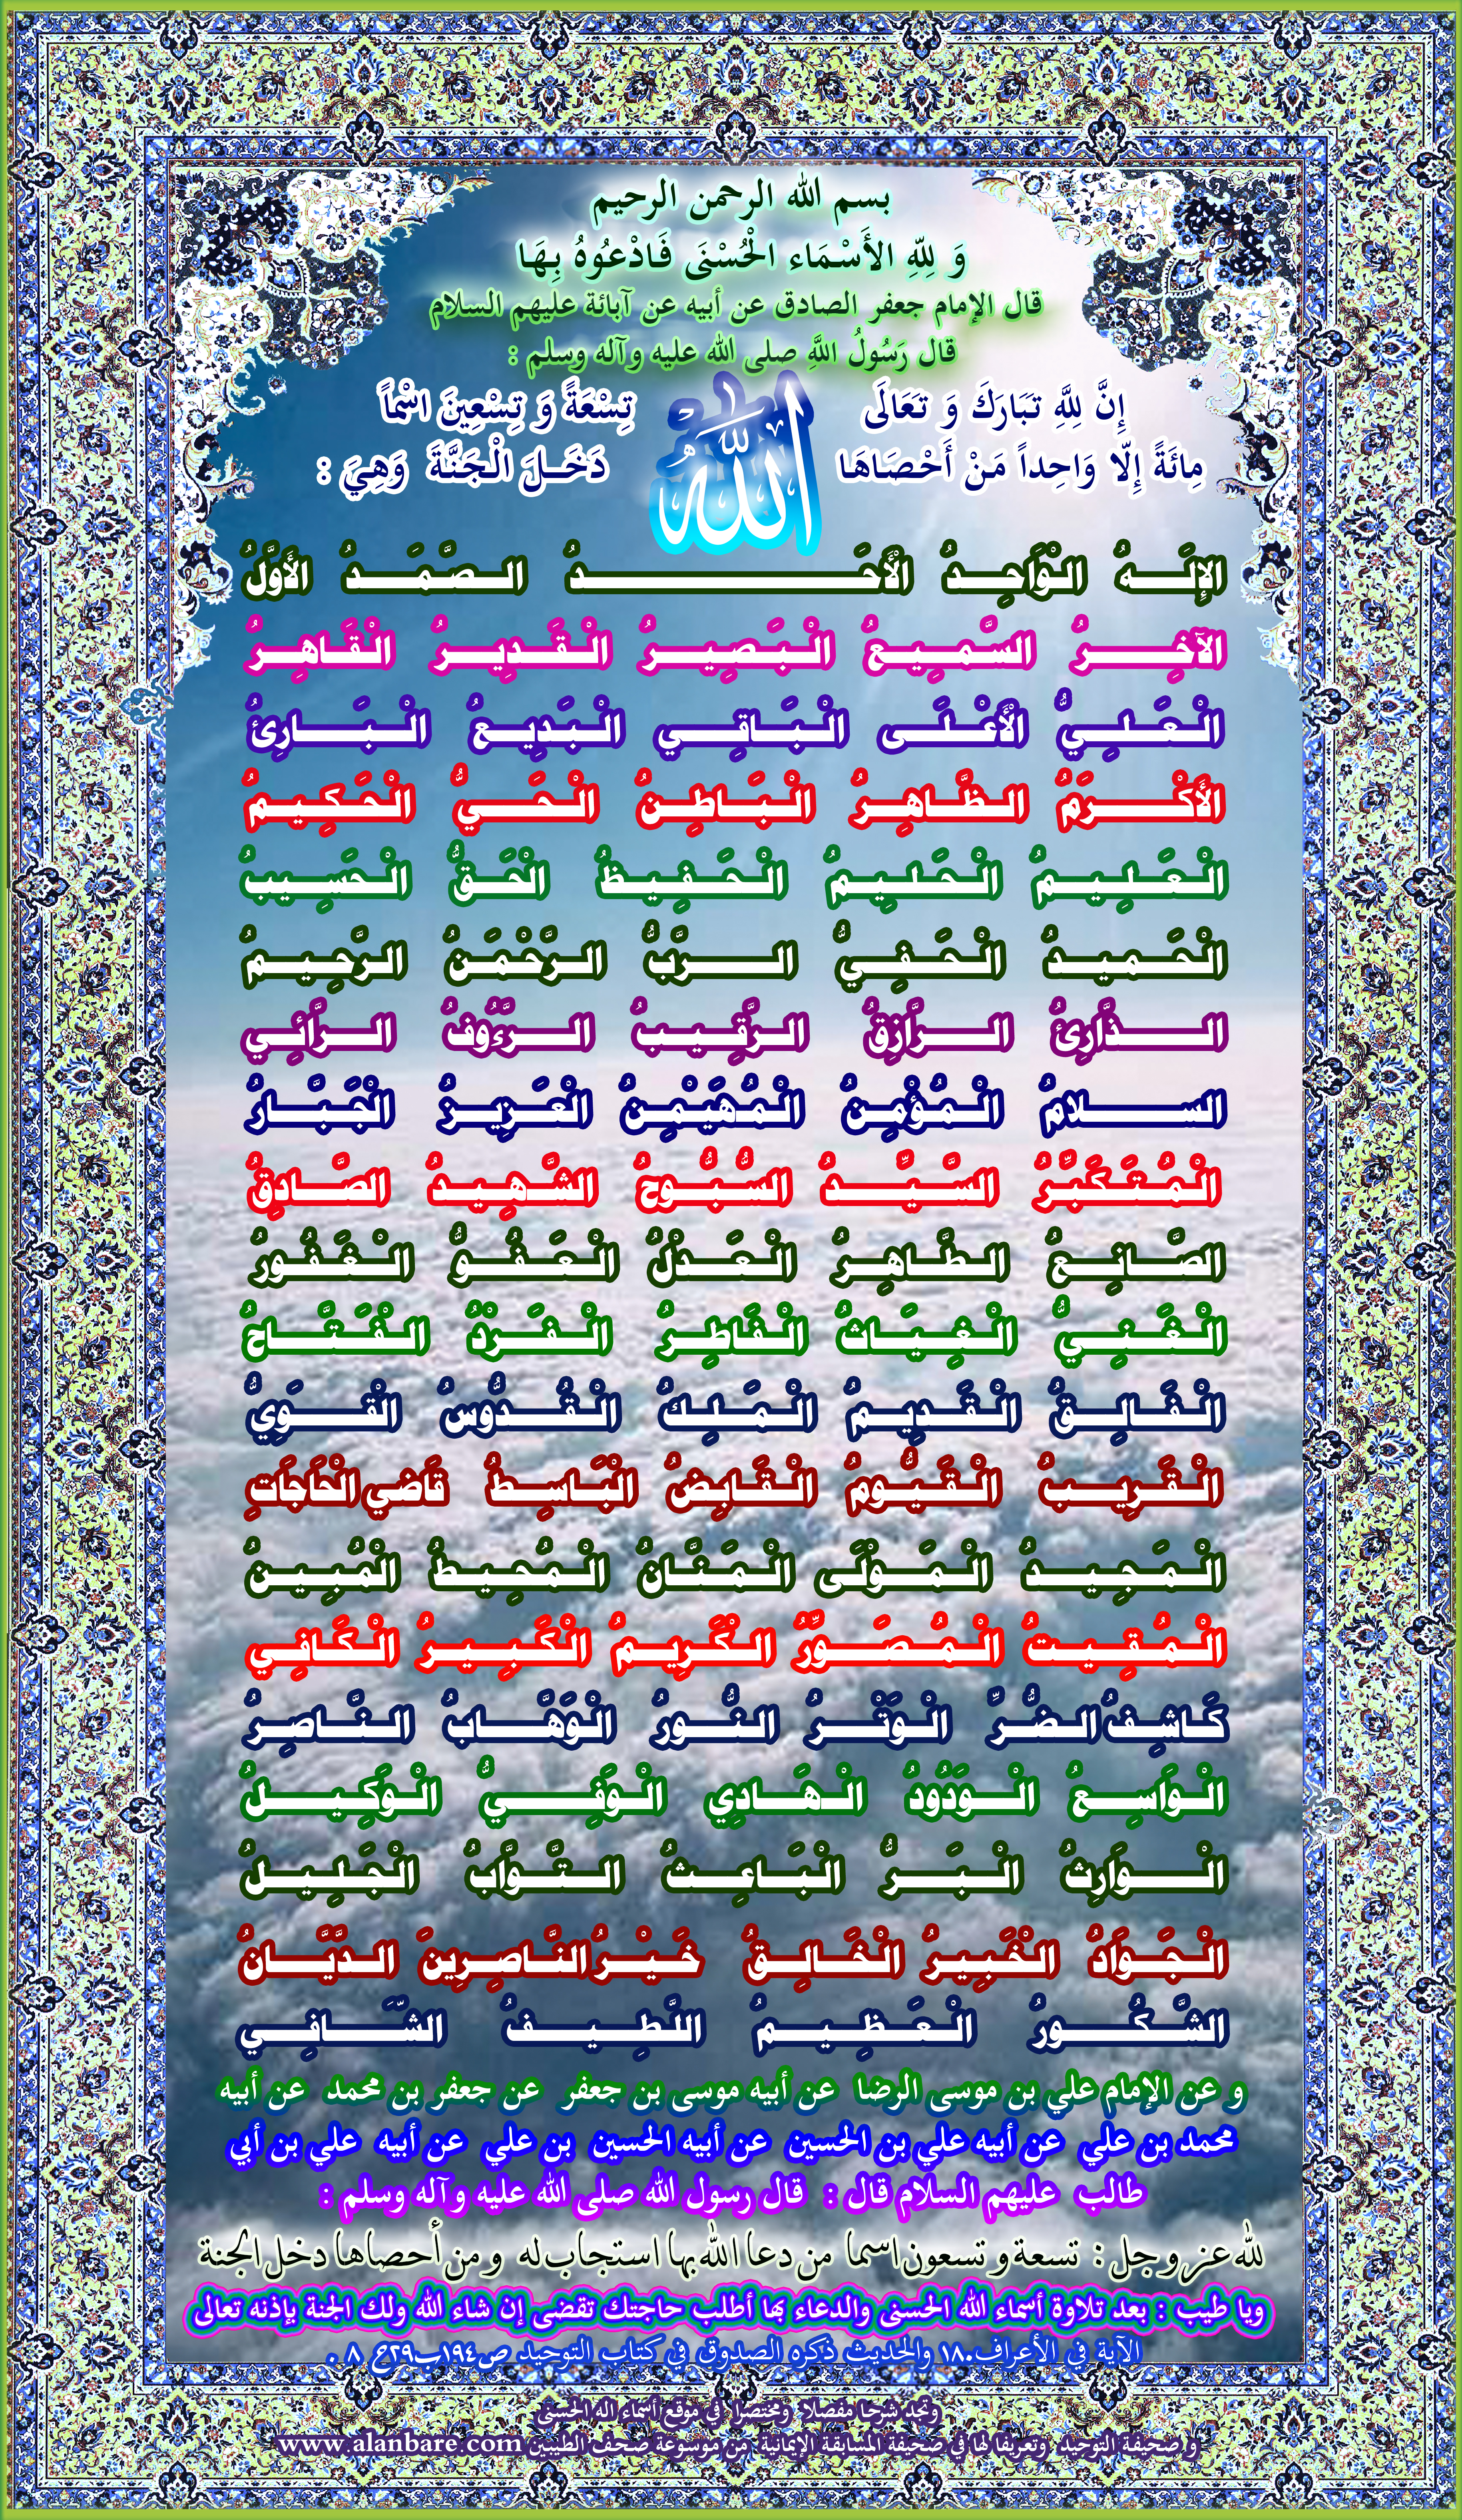 بسم الله الرحمن الرحيم
وَ لِلّٰهِ الأَسْمَاء الْحُسْنَى فَادْعُوهُ بِهَا
قال الإمام جعفر الصادق عن أبيه عن آبائة عليهم السلام
قال رَسُولُ اللَّهِ صلى الله عليه وآله وسلم :
إِنَّ لِلَّهِ تَبَارَكَ وَ تَعَالَى تِسْعَةً وَ تِسْعِينَ اسْماً
الله
مِائَةً إِلّا وَاحِداً مَنْ أَحْصَاهَا دَخَلَ الْجَنَّةَ وَهِيَ :
الإِلَهُ الْوَاحِدُ الْأَحَدُ الصَّمَدُ الأَوَّلُ
الآخِرُ السَّمِيعُ الْبَصِيرُ الْقَدِيرُ الْقَاهِرُ
الْعَلِيُّ الْأَعْلَى الْبَاقِي الْبَدِيعُ الْبَارِئُ
الأَكْرَمُ الظَّاهِرُ الْبَاطِنُ الْحَيُّ الْحَكِيمُ
الْعَلِيمُ الْحَلِيمُ الْحَفِيظُ الْحَقُّ الْحَسِيبُ
الْحَمِيدُ الْحَفِيُّ الرَّبُّ الرَّحْمَنُ الرَّحِيمُ
الذَّارِئُ الرَّازِقُ الرَّقِيبُ الرَّءُوفُ الرَّائِي
السلامُ الْمُؤْمِنُ الْمُهَيْمِنُ الْعَزِيزُ الْجَبَّارُ
الْمُتَكَبِّرُ السَّيِّدُ السُّبُّوحُ الشَّهِيدُ الصَّادِقُ
الصَّانِعُ الطَّاهِرُ الْعَدْلُ الْعَفُوُّ الْغَفُورُ
الْغَنِيُّ الْغِيَاثُ الْفَاطِرُ الْفَرْدُ الْفَتَّاحُ
الْفَالِقُ الْقَدِيمُ الْمَلِكُ الْقُدُّوسُ الْقَوِيُّ
الْقَرِيبُ الْقَيُّومُ الْقَابِضُ الْبَاسِطُ قَاضي الْحَاجَاتِ
الْمَجِيدُ الْمَوْلَى الْمَنَّانُ الْمُحِيطُ الْمُبِينُ
الْمُقِيتُ الْمُصَوِّرُ الْكَرِيمُ الْكَبِيرُ الْكَافِي
كَاشِفُ الضُّرِّ الْوَتْرُ النُّورُ الْوَهَّابُ النَّاصِرُ
الْوَاسِعُ الْوَدُودُ الْهَادِي الْوَفِيُّ الْوَكِيلُ
الْوَارِثُ الْبَرُّ الْبَاعِثُ التَّوَّابُ الْجَلِيلُ
الْجَوَادُ الْخَبِيرُ الْخَالِقُ خَيْرُ النَّاصِرِينَ الدَّيَّانُ
الشَّكُورُ الْعَظِيمُ اللَّطِيفُ الشَّافِي
و عن الإمام علي بن موسى الرضا عن أبيه موسى بن جعفر عن جعفر بن محمد عن أبيه
محمد بن علي عن أبيه علي بن الحسين عن أبيه الحسين بن علي عن أبيه علي بن أبي
طالب عليهم السلام قال : قال رسول الله صلى الله عليه وآله وسلم :
لله عز وجل : تسعة و تسعون اسما من دعا الله بها استجاب له و من أحصاها دخل الجنة
ويا طيب : بعد تلاوة أسماء الله الحسنى والدعاء بها أطلب حاجتك تقضى إن شاء الله ولك الجنة بإذنه تعالى
الآية في الأعراف١٨٠ والحديث ذكره الصدوق في كتاب التوحيد ص١٩٤ب٢٩ح ٨ .
وتجد شرحا مفصلا ومختصرا في موقع أسماء الله الحسنى
و صحيفة التوحيد وتعريفا لها في صحيفة المسابقة الإيمانية من موسوعة صحف الطيبين www.alanbare.com